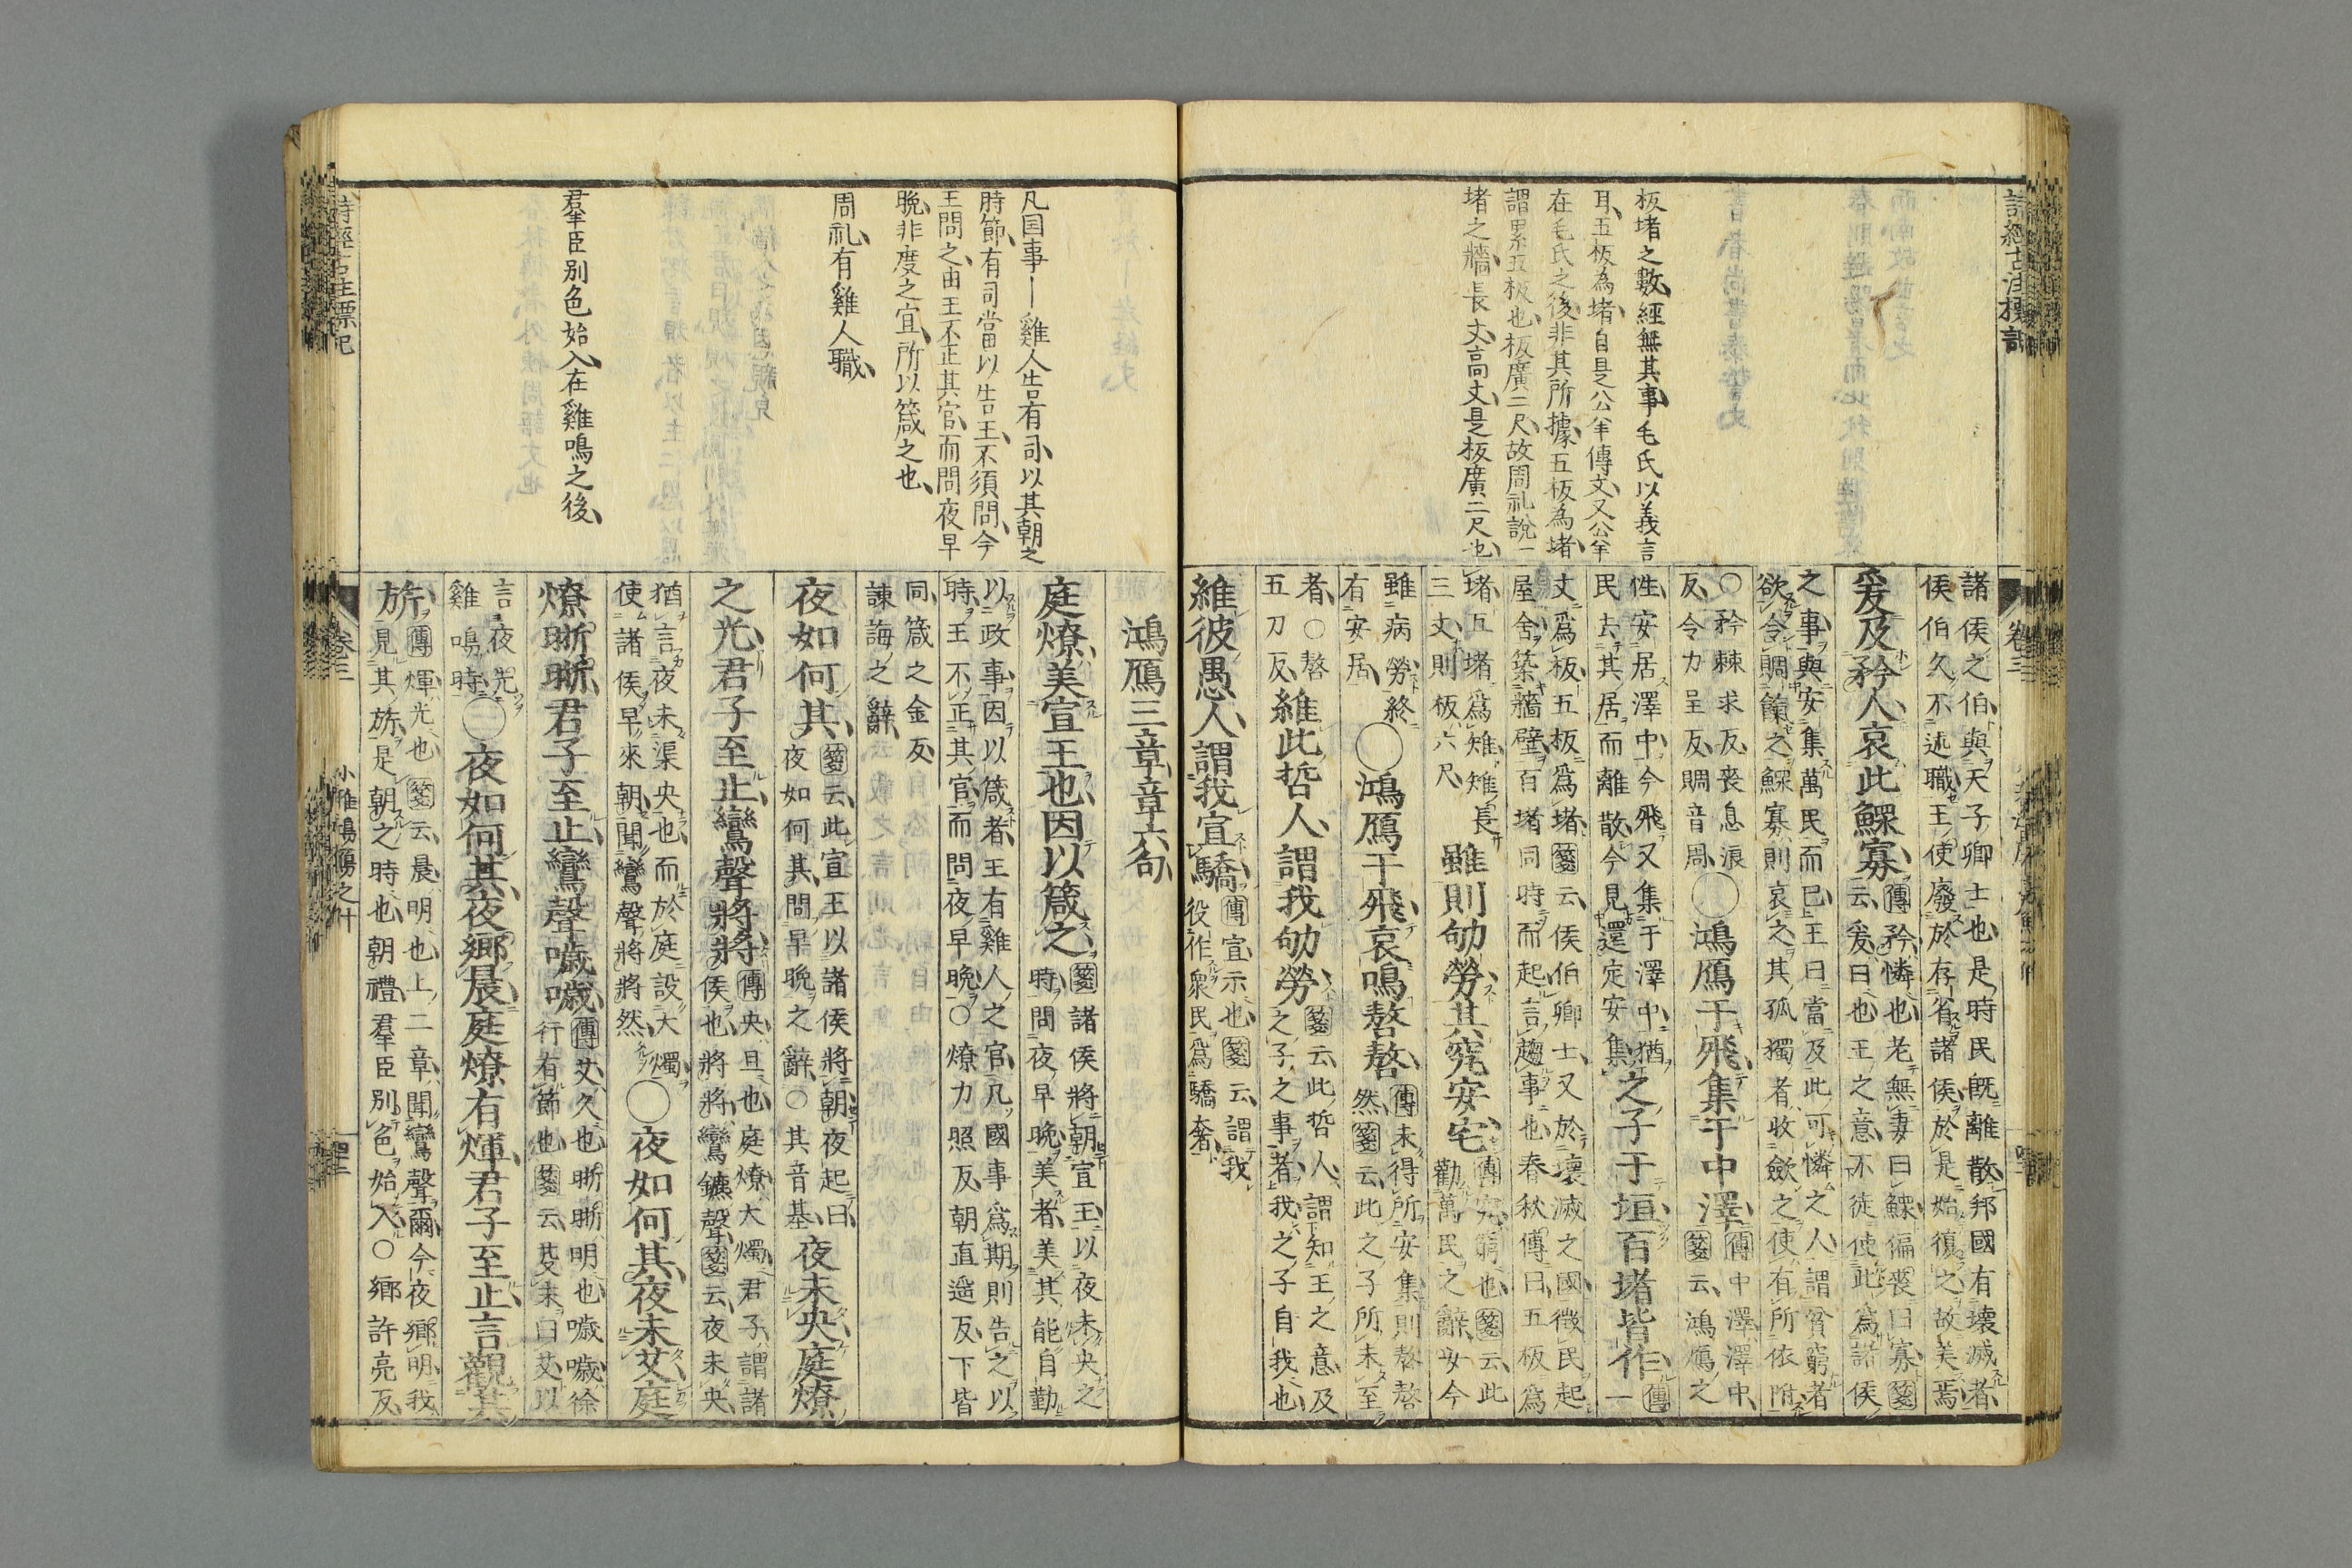 板堵之數、經無其事、毛氏以義言
耳、五板為堵、自是公羊傳文、又公羊
在毛氏之後、非其所據、五板為堵、
謂累五板也、板廣二尺、故周礼說一
堵之牆、長丈、高丈、是板廣二尺也、
卷三
諸侯之伯、與天子卿士也、是時民既離散、邦國有壞滅者、
侯伯久不述職、王使廢於存省、諸侯於是始復之、故美焉、
爰及矜人、哀此鰥寡、
傳矜、憐也、老無妻曰鰥、偏喪曰寡、箋
云、爰、曰也、王之意、不徒使此爲諸侯
之事與安集萬民而已、王曰當及此可憐之人、謂貧窮者
欲令賙餼之、鰥寡則哀之、其孤獨者、收斂之、使有所依附、
〇矜棘求反、喪息浪
反、令力呈反、賙音周、
〇鴻鴈于飛、集于中澤、
傳中澤、澤中、
箋云、鴻鴈之
性、安居澤中、今飛又集于澤中、猶
民去其居而離散、今見還定安集、
之子于垣、百堵皆作、
傳
一
丈爲板、五板爲堵、箋云、侯伯卿士、又於壞滅之國、徴民起
屋舍、築牆壁、百堵同時而起、言趨事也、春秋傳曰、五板爲
堵、五堵爲雉、雉長
三丈、則板六尺、
雖則劬勞、其究安宅、
傳究、窮也、箋云、此
勸萬民之辭、女今
雖病勞、終
有安居、
〇鴻鴈于飛、哀鳴嗸嗸、
傳未得所安集、則嗸嗸
然、箋云、此之子所未至
者、〇嗸
五刀反、
維此哲人、謂我劬勞、
箋云、此哲人、謂知王之意、及
之子之事者、我、之子自我也、
維彼愚人、謂我宣驕、
傳宣、示也、箋云、謂我
役作衆民、爲驕奢、
凡国事ー雞人告有司、以其朝之
時節、有司當以告王、不須問、今
王問之、由王不正其官、而問夜早
晚、非度之宜、所以箴之也、
周礼、有雞人職、
羣臣別色始入、在雞鳴之後、
鴻鴈三章章六句、
庭燎、美宣王也、因以箴之、
箋諸侯將朝宣王、以夜未央之
時、問夜早晚、美者、美其能自勤
以政事、因以箴者、王有雞人之官、凡國事爲期、則告之以
時、王不正其官、而問夜早晚、〇燎力照反、朝直遥反、下皆
同、箴之金反、
諫誨之辭、
夜如何其、
箋云、此宣王以諸侯將朝、夜起曰、
夜如何其、問早晚之辭、〇其音基、
夜未央、庭燎
之光、君子至止、鸞聲將將、
傳央、旦也、庭燎、大燭、君子、謂諸
侯也、將將、鸞鑣聲、箋云、夜未央、
猶言夜未渠央也、而於庭設大燭、
使諸侯早來朝、聞鸞聲將將然、
〇夜如何其、夜未艾、庭
燎晣晣、君子至止、鸞聲噦噦、
傳艾、久也、晣晣、明也、噦噦、徐
行有節也、箋云、芟末曰艾、以
言夜先
雞鳴時、
〇夜如何其、夜鄉晨、庭燎有煇、君子至止、言觀其
旂、
傳煇、光也、箋云、晨、明也、上二章、聞鸞聲爾、今夜鄉明、我
見其旂、是朝之時也、朝禮、羣臣別色始入、〇鄉許亮反、
詩經古注標記
卷三
小雅鴻鴈之什